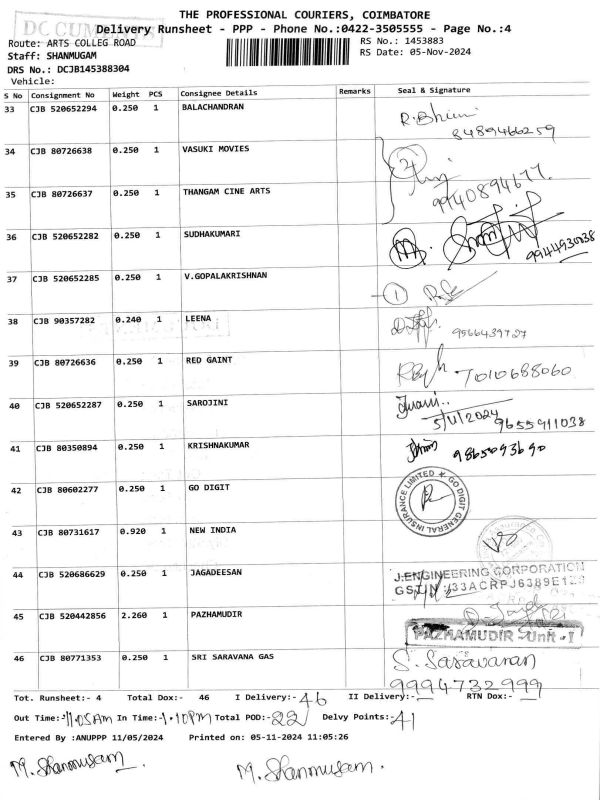 THE PROFESSIONAL COURIERS, COIMBATORE
DC CUM
Delivery Runsheet - PPP - Phone No.:0422-3505555 - Page No.:4
Route: ARTS COLLEG ROAD
RS No.: 1453883
Staff: SHANMUGAM
RS Date: 05-Nov-2024
DRS No.: DCJB145388304
Vehicle:
S No Consignment No Weight PCS Consignee Details Remarks Seal & Signature
33 CJB 520652294 0.250 1 BALACHANDRAN R.Bhimi
8489466259
34 CJB 80726638 0.250 1 VASUKI MOVIES
9940894677.
35 CJB 80726637 0.250 1 THANGAM CINE ARTS
36 CJB 520652282 0.250 1 SUDHAKUMARI
9944930038
37 CJB 520652285 0.250 1 V.GOPALAKRISHNAN
1
38 CJB 90357282 0.240 1 LEENA
9566439727
39 CJB 80726636 0.250 1 RED GAINT 7010688060
40 CJB 520652287 0.250 1 SAROJINI
5/11/2024
9655911038
41 CJB 80350894 0.250 1 KRISHNAKUMAR 9865093690
42 CJB 80602277 0.250 1 GO DIGIT
GO DIGIT GENERAL INSURANCE LIMITED
43 CJB 80731617 0.920 1 NEW INDIA
44 CJB 520686629 0.250 1 JAGADEESAN
J.ENGINEERING CORPORATION
GSTIN:33ACRPJ6389E1
45 CJB 520442856 2.260 1 PAZHAMUDIR
PAZHAMUDIR -Unit - I
46 CJB 80771353 0.250 1 SRI SARAVANA GAS S. Saravanan
9994732999
Tot. Runsheet:- 4 Total Dox:- 46 I Delivery:- 46 II Delivery:- RTN Dox:-
Out Time:- 11.05AM In Time:- 1.10PM Total POD:- 22 Delvy Points:- 41
Entered By :ANUPPP 11/05/2024 Printed on: 05-11-2024 11:05:26
M. Shanmugam. M. Shanmugam.